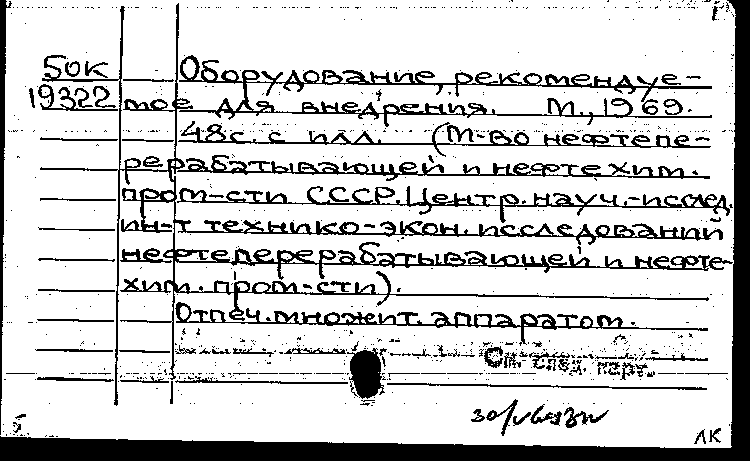 50К
19322
Оборудование, рекомендуе-
мое для внедрения. М., 1969.
48с. с илл. (М-во нефтепе-
рерабатывающей и нефтехим.
пром-сти СССР. Центр. науч.-исслед.
ин-т технико-экон. исследований
нефтеперерабатывающей и нефте-
хим. пром-сти).
Отпеч. множит. аппаратом.
См. след. карт.
5
ЛК